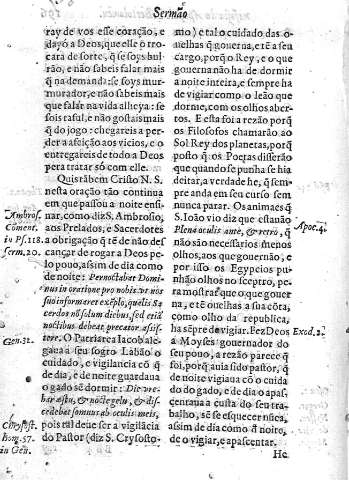 Sermão
ray de vos esse coração, e
dayó a Deos, que elle o tro-
cara de sorte, q̃ se soys bul-
rão, e não sabeis falar mais
q̃ na demanda: se soys mur-
murador, e não sabeis mais
que falar na vida alheya: se
sois taful, e não gostais mais
q̃ do jogo: chegareis a per-
der a afeição aos vicios, e o
entregareis de todo a Deos
pera tratar só com elle.
Quis tãbem Christo N. S.
nesta oração tão continua
em que passou a noite ensi-
nar, como diz S. Ambrosio,
aos Prelados, e Sacerdotes
a obrigação q̃ tẽ de não des
cançar de rogar a Deos pe-
lo pouo, assim de dia como
de noite: Pernoctabat Domi-
nus in oratione pro nobis, ut nos
suo informaret exẽplo, quelis Sa
cerdos nõ solum diebus, sed etiã
noctibus debeat precator assis-
tere. O Patriarca Iacob ale-
gaua a seu sogro Labão o
cuidado, e vigilancia cõ q̃
de dia, e de noite guardaua
o gado sẽ dormir: Die vre-
bar æstu, & nocte gelu, & dis-
cedebat somnus ab oculis meis,
pois tal deue ser a vigilãcia
do Pastor (diz S. Crysosto-
Ambros.
Cõment.
in Ps. 118.
serm. 20.
Gen. 31.
Chrysost.
hom. 57.
in Gen.
mo) e tal o cuidado das o-
uelhas q̃ gouerna, e tẽ a seu
cargo, porq̃ o Rey, e o que
gouerna não ha de dormir
a noite inteira, e sempre ha
de vigiar como o leão que
dorme, com os olhos aber-
tos. E esta foi a rezão porq̃
os Filosofos chamarão ao
Sol Rey dos planetas, porq̃
posto q̃ os Poetas disserão
que quando se punha se hia
deitar, a verdade he, q̃ sem-
pre anda em seu curso sem
nunca parar. Os animaes q̃
S. Ioão vio diz que estauão
Plena oculis ante, & retrò, q̃
não são necessarios menos
olhos, aos que gouernão, e
per isso os Egypcios pu-
nhão olhos no sceptro, pe-
ra mostrar que o que gouer
na, e tẽ ouelhas a sua cõta,
como olho da republica,
ha sẽpre de vigiar. Fez Deos
a Moyses gouernador do
seu pouo, a rezão parece q̃
foi, porq̃ auia sido pastor, q̃
de noite vigiaua cõ o cuida
do do gado, e de dia o apas
centaua a custa do seu tra-
balho, sẽ se esquecer nũca,
assim de dia como á noite,
de o vigiar, e apascentar.
Apoc. 4.
Exod. 2.
He